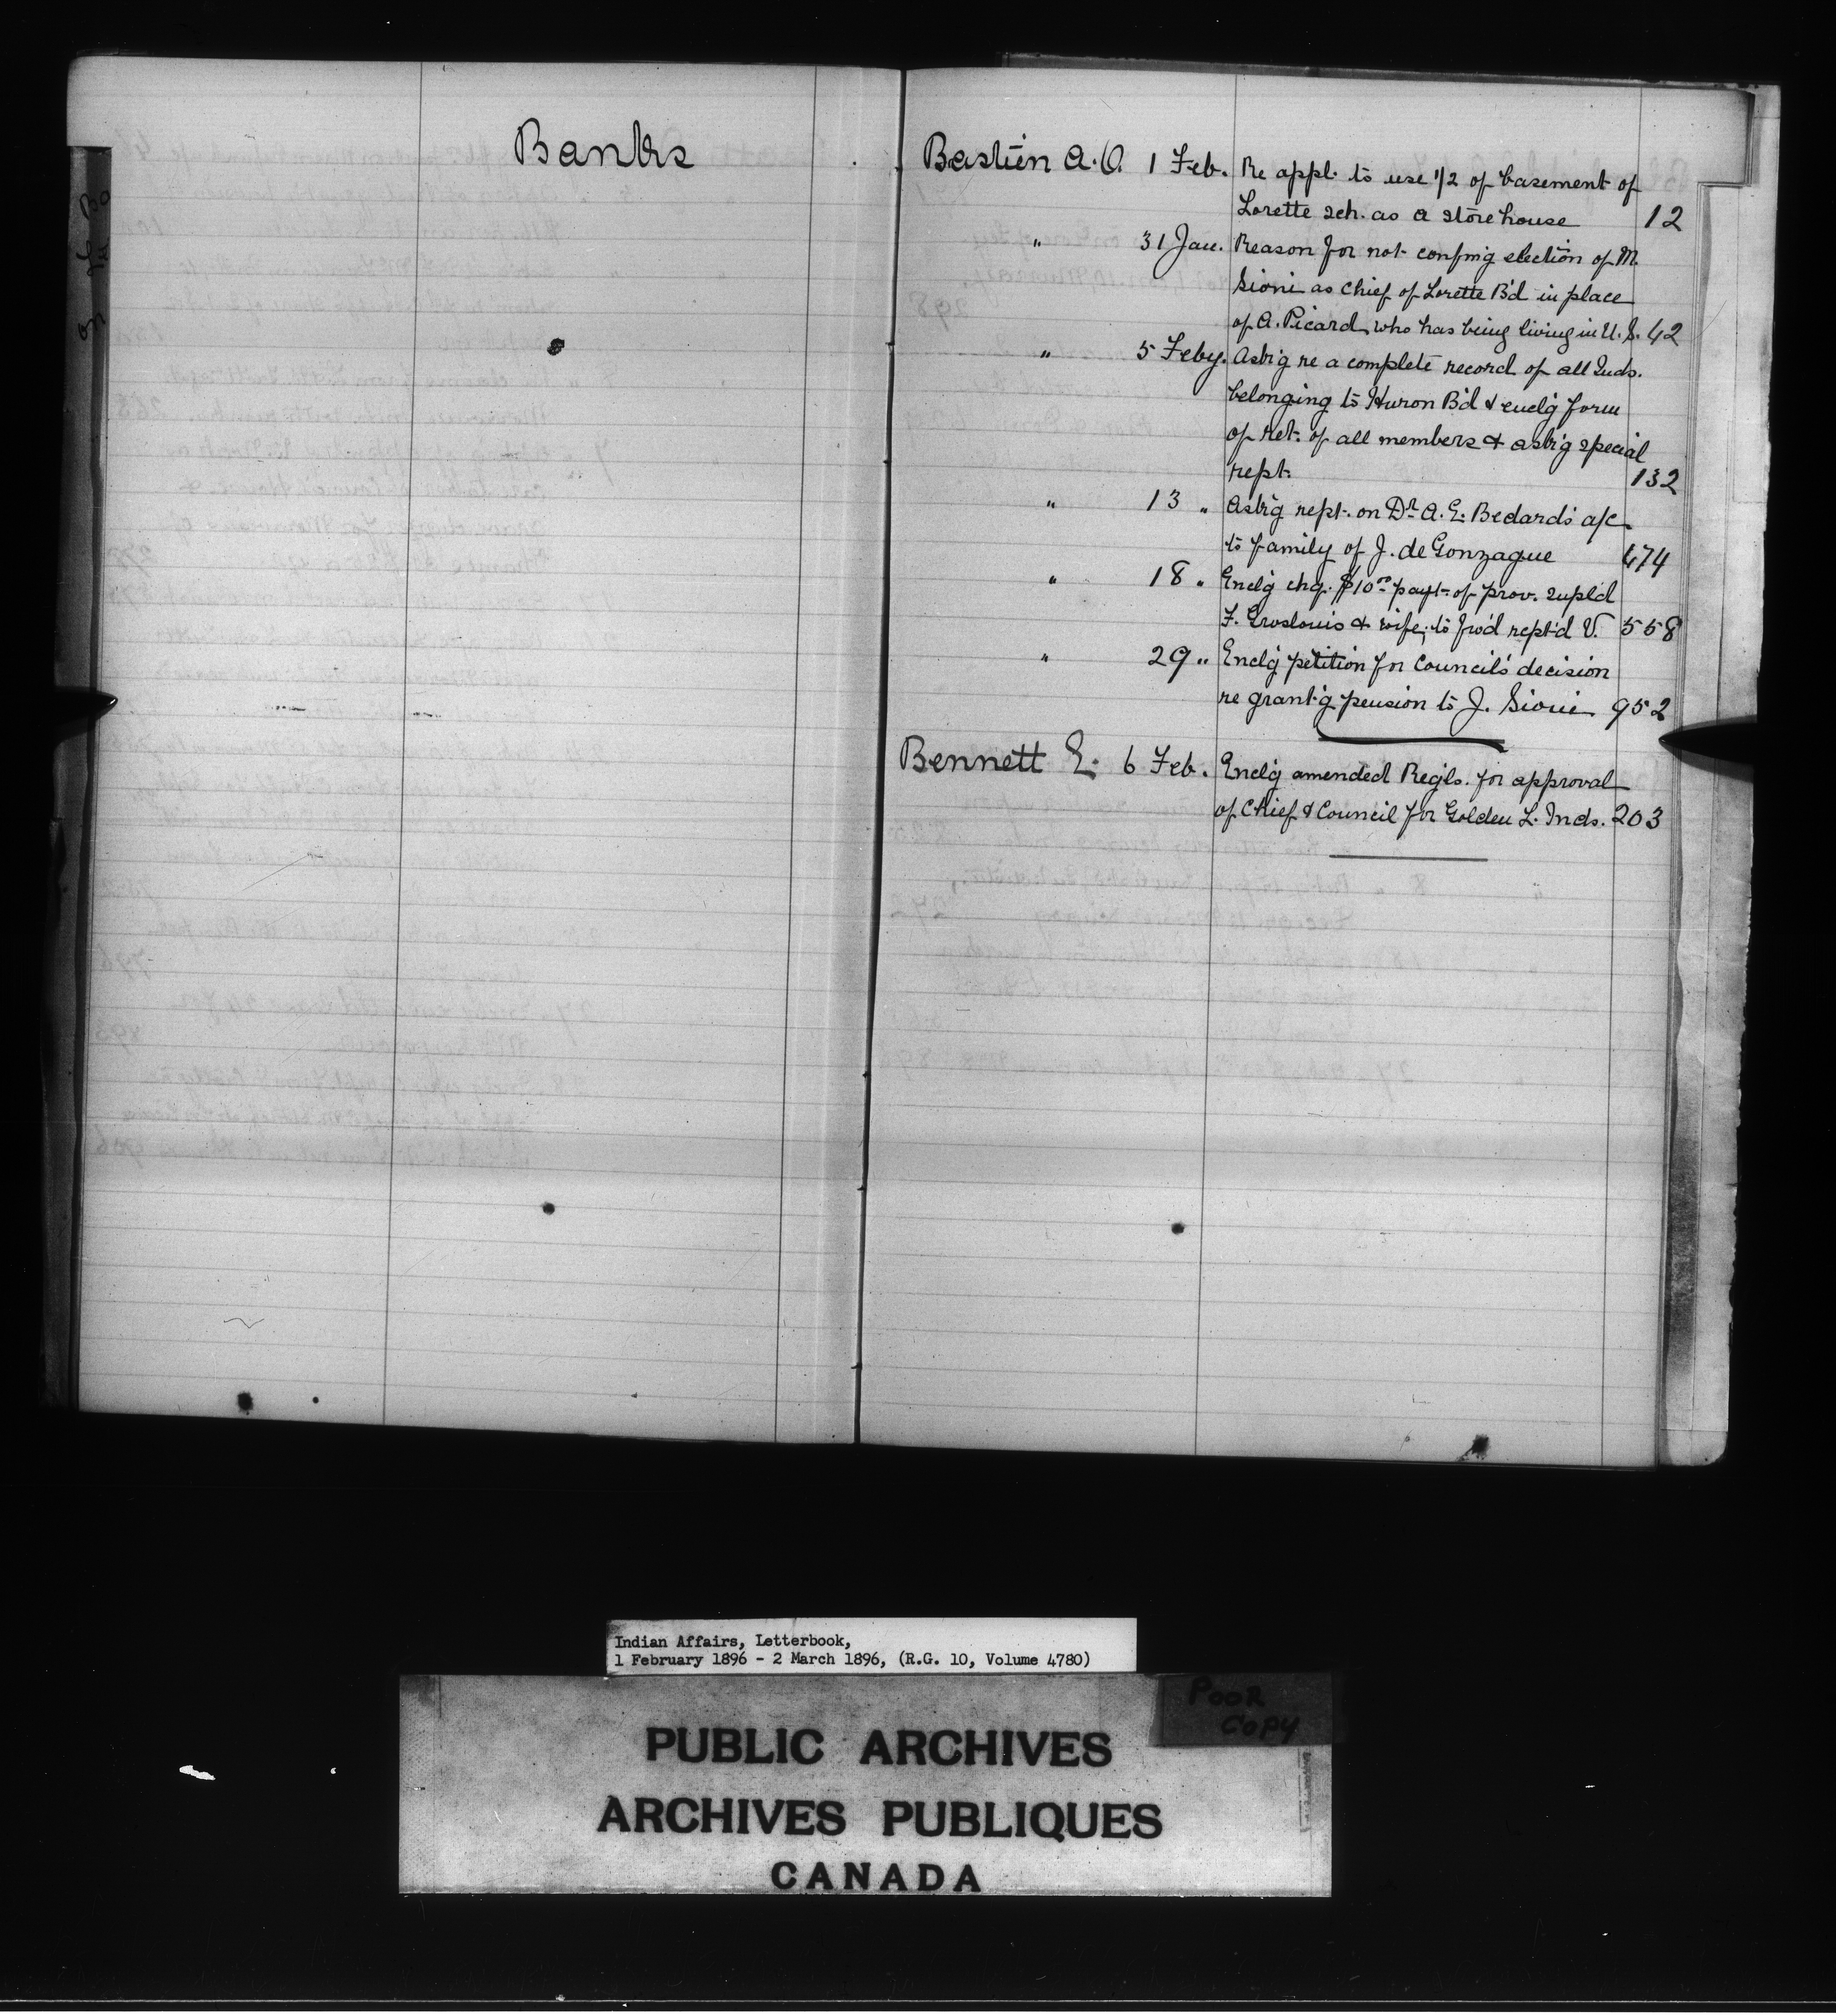 Banks
Bastien A. O. 1 Feb. Re appl. to use 1/2 of basement of
Lorette sch. as a store house 12
" 31 Jan. Reason for not confmg election of M.
Sioui as Chief of Lorette B'd in place
of A. Picard who has being living in U.S. 42
" 5 Feby. Ask'g re a complete record of all Inds.
belonging to Huron B'd & encl'g form
of ret. of all members & ask'g special
rept. 132
" 13 " Ask'g rept. on Dr. A. E. Bedard's a/c
to family of J. de Gonzague 474
" 18 " Encl'g chq. $10.00 payt. of prov. supl'd
F. Groslouis & wife; to fw'd rept'd V. 558
" 29 " Encl'g petition for Council's decision
re grant'g pension to J. Sioui 952
Bennett E. 6 Feb. Encl'g amended Regls. for approval
of Chief & Council for Golden L. Inds. 203
Indian Affairs, Letterbook,
1 February 1896 - 2 March 1896, (R.G. 10, Volume 4780)
POOR
COPY
PUBLIC ARCHIVES
ARCHIVES PUBLIQUES
CANADA